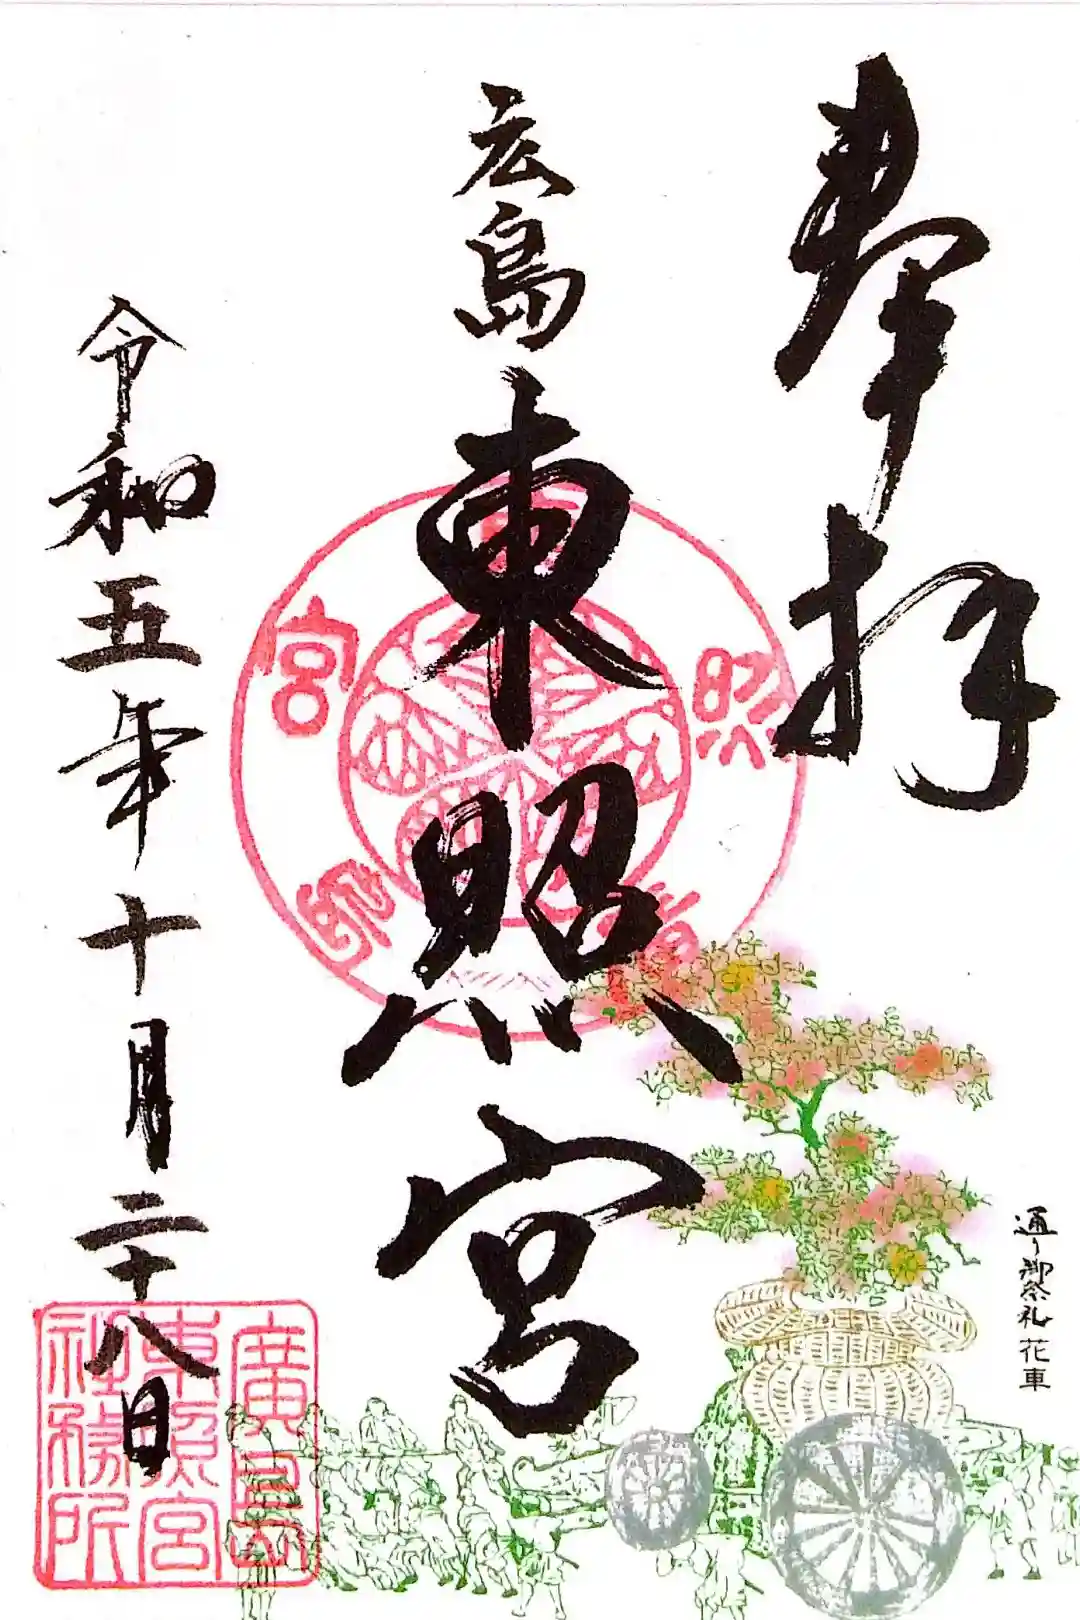 奉拝
広島東照宮
令和五年十月二十八日
通り御祭礼花車
照
宮
廣島
東照宮
社務所